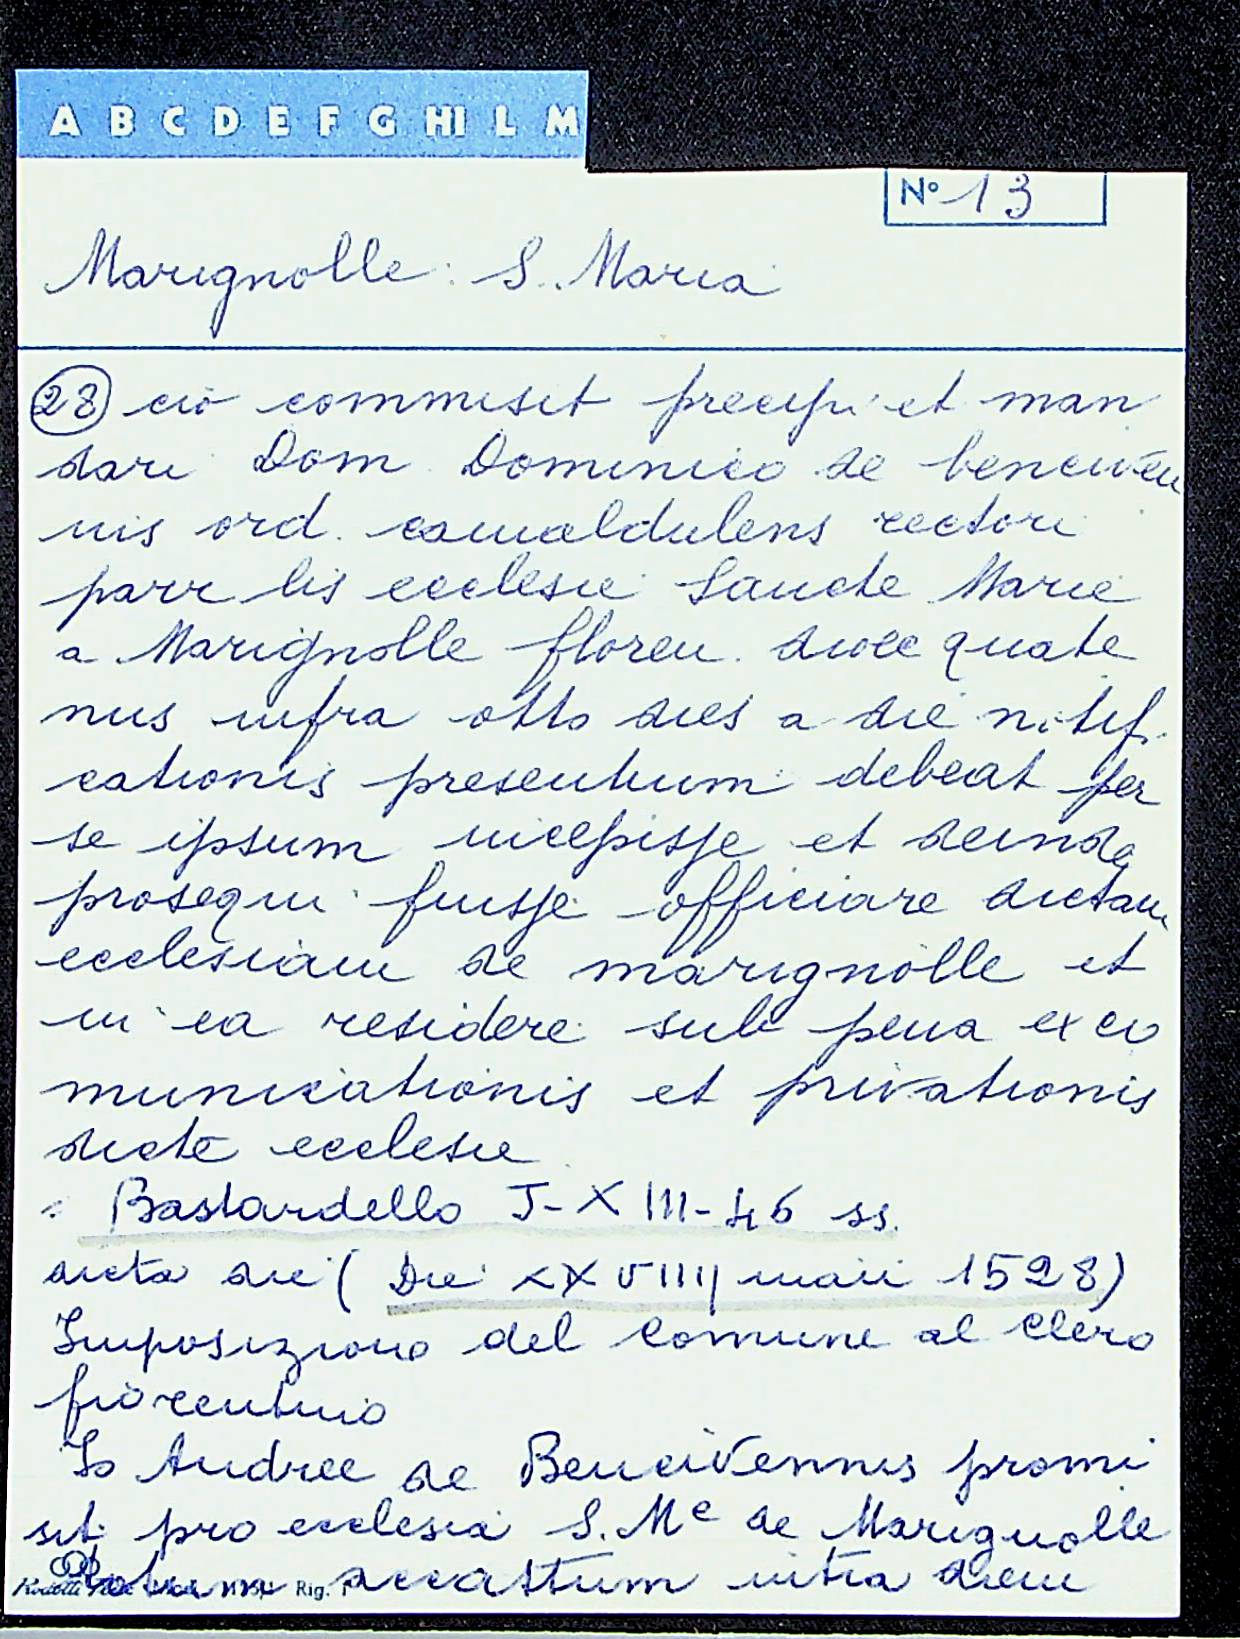 A B C D E F G HI L M
Nº 13
Marignolle: S. Maria
28 cio commisit precipi et man
dari Dom Dominico de benciven
nis ord. camaldulens rectori
parr lis ecclesie Sancte Marie
a Marignolle floren. dioce quate
nus infra otto dies a die notifi
cationis presentium debeat per
se ipsum incepisse et deinde
prosequi fuisse officiare dictam
ecclesiam de marignolle et
in ea residere sub pena exco
municationis et privationis
dicte ecclesie
Bastardello J-XIII-46 ss.
dicta die (Die XXVIIII maii 1528)
Imposizione del comune al clero
fiorentino
Jo Andree de Bencivennis promi
sit pro ecclesia S. Me de Marignolle
totum accattum intra diem
Rig. 1